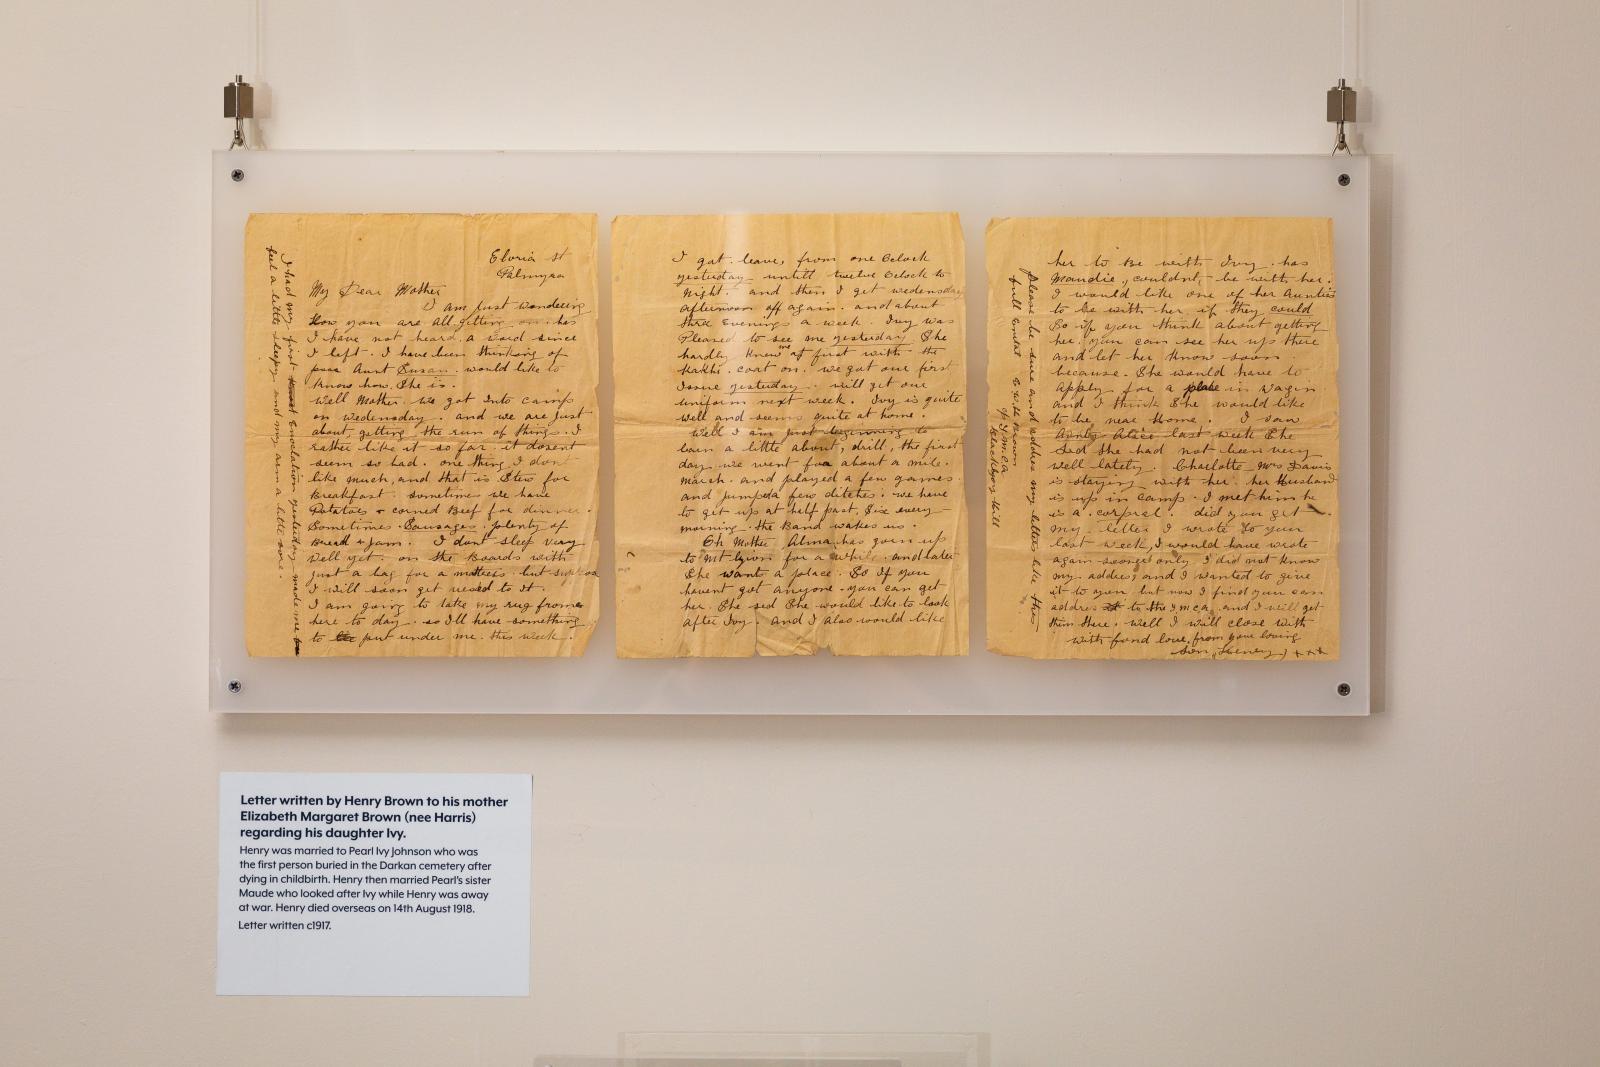 Eloria St
Palmyra
My Dear Mother
I am Just wondering
How you are all getting on. has
I have not heard a word since
I left. I have been thinking of
poor Aunt Susan. would like to
know how She is.
Well Mother. we got Into camp
on wedensday. and we are just
about getting the run of things. I
rather like it so far. it dosent
seem so bad. one thing I dont
like much, and that is Stew for
Breakfast. sometimes we have
Potatoes & corned Beef for dinner.
Sometimes. Sausages. plenty of
Bread & Jam. I dont sleep very
well yet. on the Boards with
just a bag for a mattress. but suppose
I will soon get used to it.
I am going to take my rug from
here to day. so I'll have something
to put under me. this week.
I had my first Enoculation yesterday made me
feel a little sleepy and my arm a little sore.
I got leave, from one Oclock
yesterday untill twelve Oclock to
Night. and then I get wedensday
afternoon off again. and about
three Evenings a week. Ivy was
Pleased to see me yesterday. She
hardly knew me at first with the
Kakhi. coat on. we got our first
Issue yesterday. will get our
uniform next week. Ivy is quite
well and seems quite at home.
Well I am just beginning to
learn a little about, drill, the first
day we went for about a mile.
march. and played a few games.
and jumped a few ditches. we have
to get up at half past, Six every
morning. the Band wakes us.
Oh Mother, Alma has goin up
to Mt Lyion for a while. and later
She wants a place. So If you
havent got anyone. you can get
her. She sed She would like to look
after Ivy. And I also would like
her to Be with Ivy. has
Maudie, couldnt, be with her.
I would like one of her Aunties
to be with her if they could
So if you think about getting
her. you can see her up there
and let her know soon.
because. She would have to
apply for a place in Wagin
and I think She would like
to be near Home. I saw
Aunty Alice last week She
Sed She had not been very
well lately. Charlotte Mrs Davis
is staying with her. her Husband
is up in camp. I met him he
is a corpral. did you get
my letter I wrote to you
last week, I would have wrote
again sooner only I did not know
my address and I wanted to give
it to you but now I find you can
address to the Y m c a. and I will get
them there. well I will close with
with fond love, from your loving
Son, Henry, x x x
Please be sure and address my letters like this
full Brown
c/o Y.M.C.A
Blackboy Hill
Letter written by Henry Brown to his mother
Elizabeth Margaret Brown (nee Harris)
regarding his daughter Ivy.
Henry was married to Pearl Ivy Johnson who was
the first person buried in the Darkan cemetery after
dying in childbirth. Henry then married Pearl's sister
Maude who looked after Ivy while Henry was away
at war. Henry died overseas on 14th August 1918.
Letter written c1917.